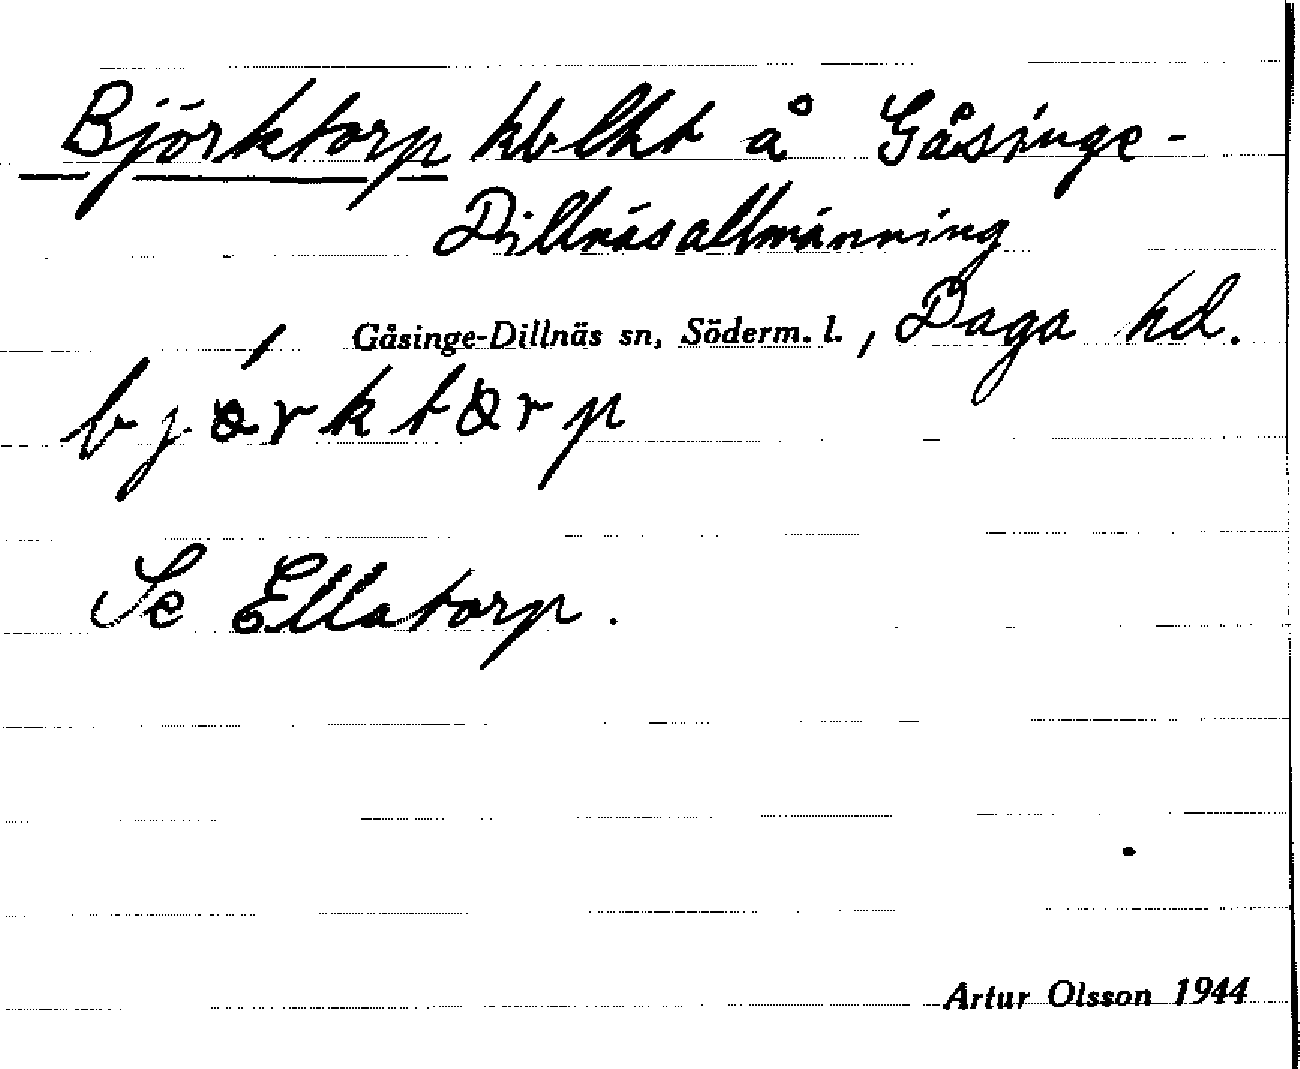 Björktorp kblkt å Gåsinge-
Dillnäsallmänning
Gåsinge-Dillnäs sn, Söderm. l., Daga hd.
Se Ellatorp.
Artur Olsson 1944